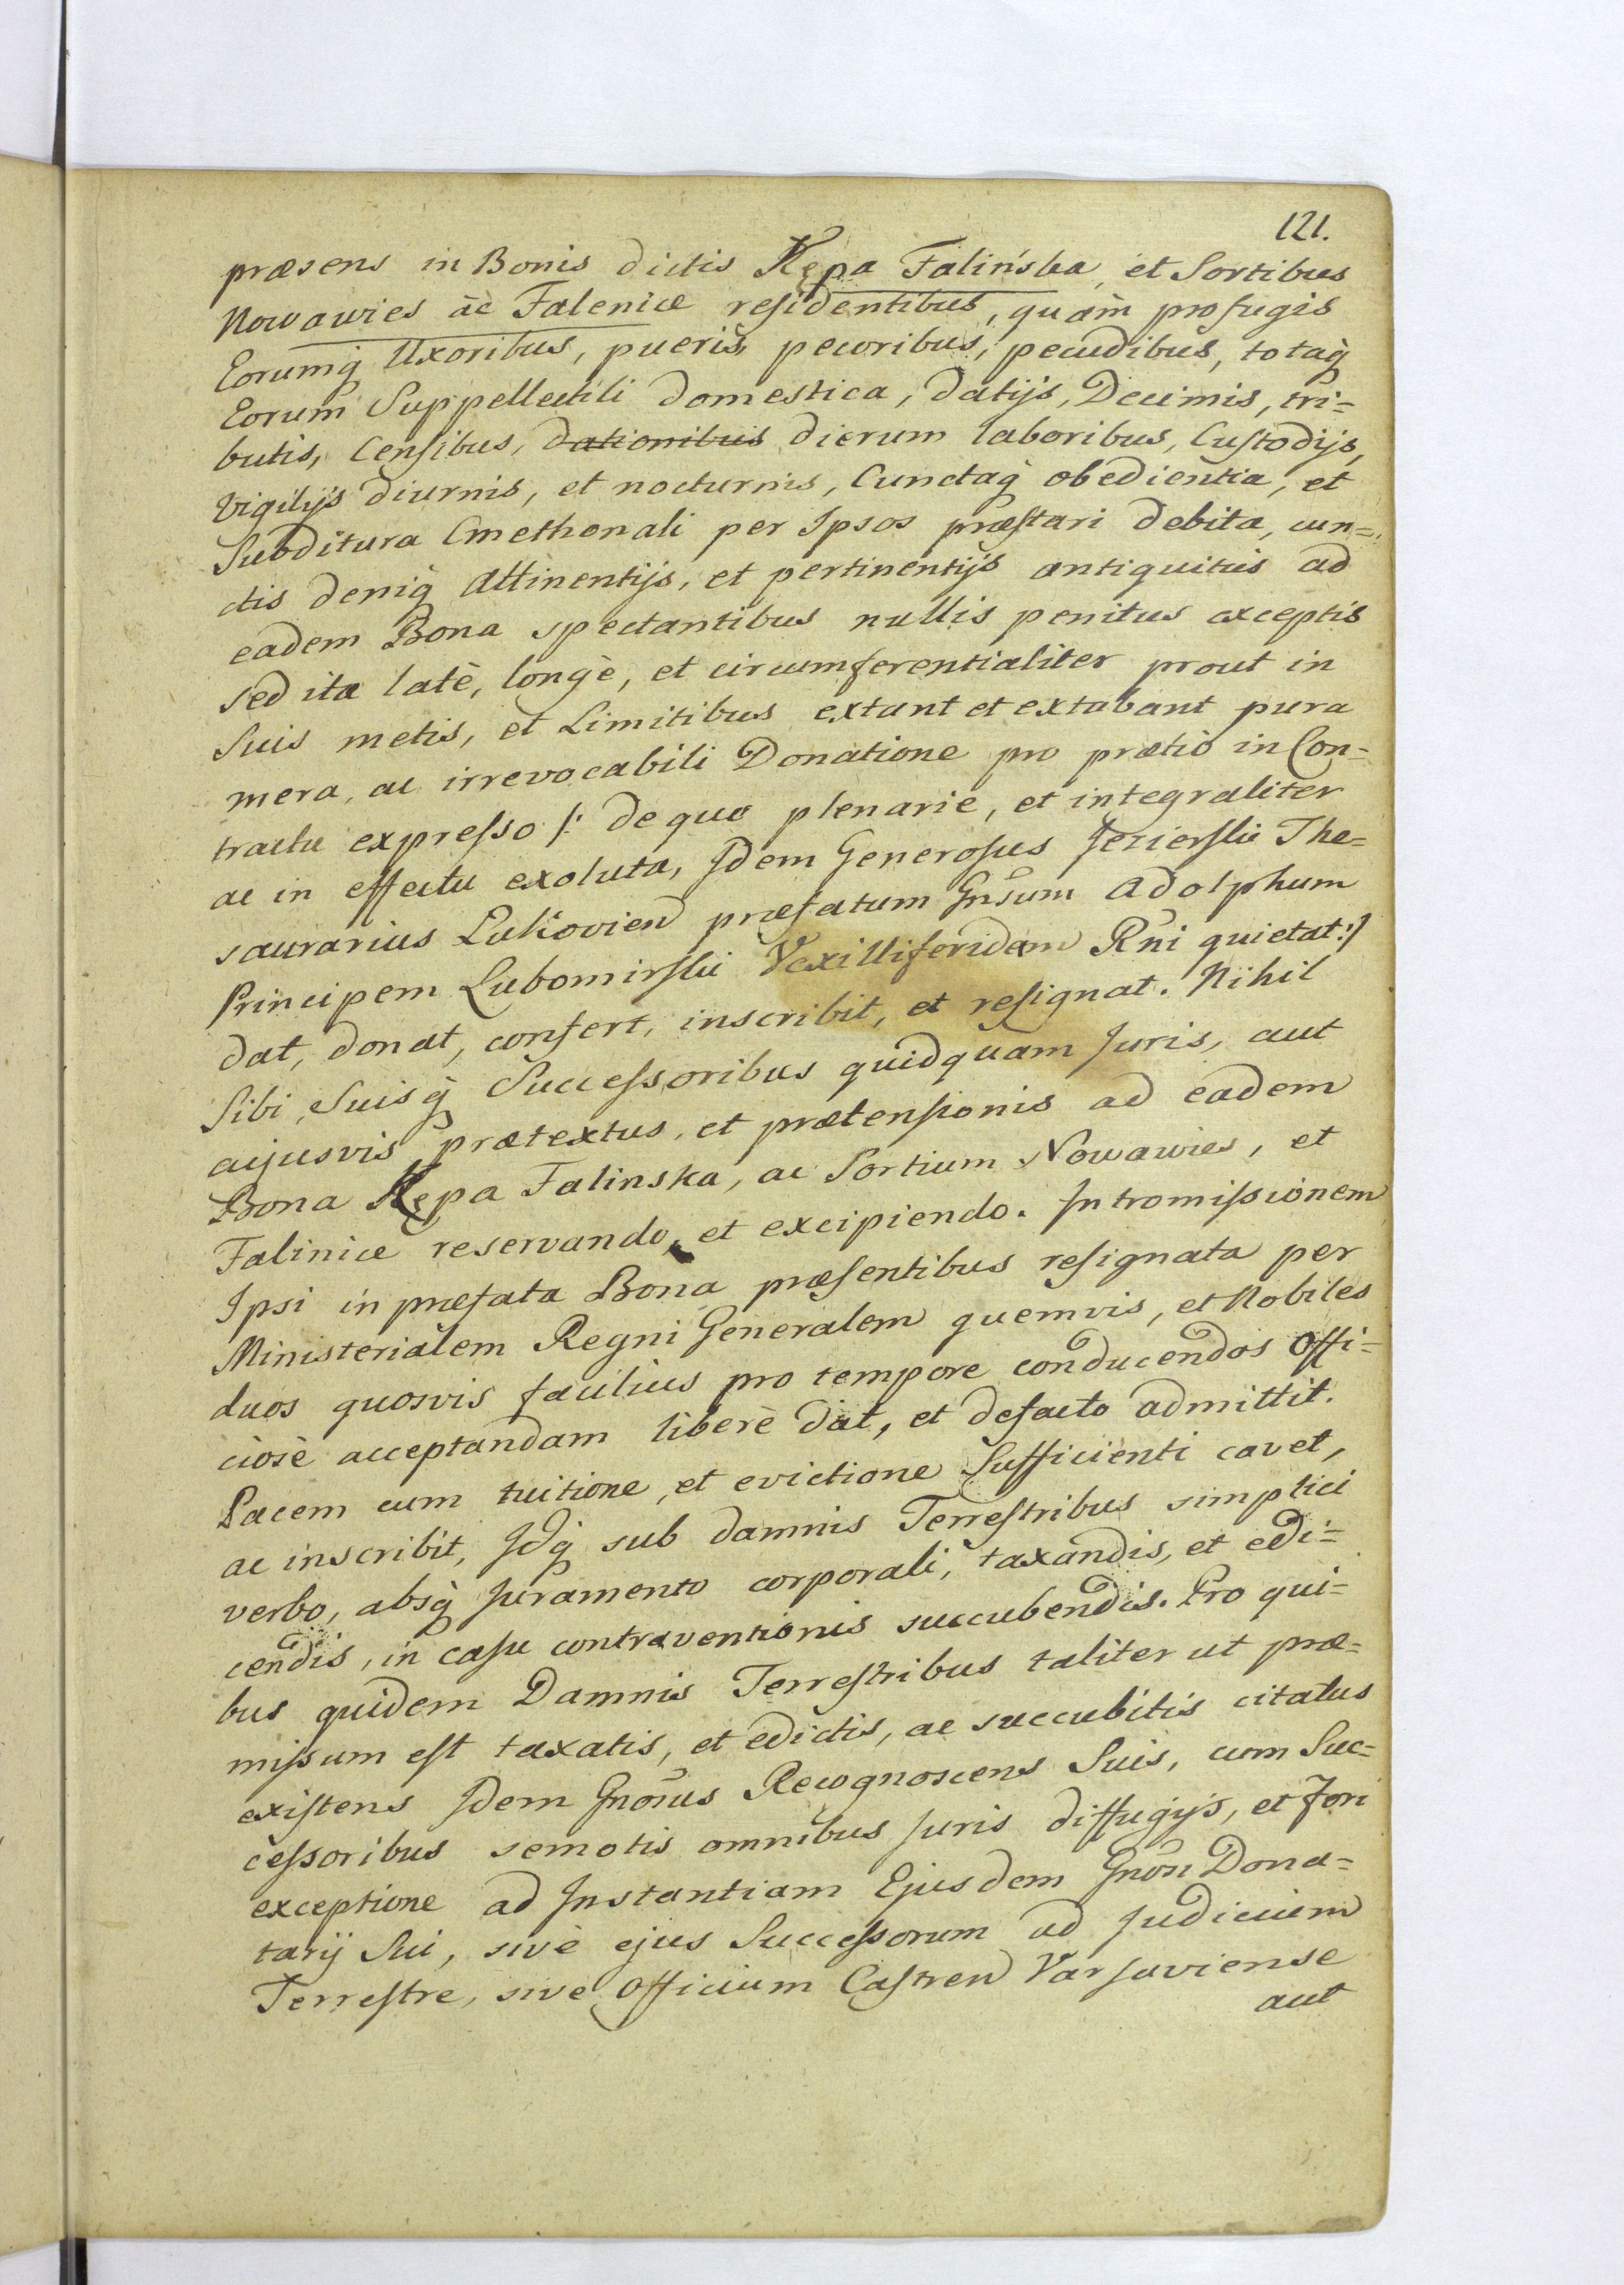 121.
præsens in Bonis dictis Kępa Falińska, et Sortibus
Nowawies ac Falenice residentibus, quàm profugis
Eorumq̀ Uxoribus, pueris, pecoribus, pecudibus, totaq̀
Eorum Suppellectili domestica, datijs, Decimis, tri=
butis, Censibus, dationibus dierum laboribus, Custodijs,
Vigilijs diurnis, et nocturnis, Cunctaq̀ obedientia, et
Subditura Cmethonali per Ipsos præstari debita, cun=
ctis deniq̀ Attinentijs, et pertinentijs antiquitùs ad
eadem Bona spectantibus nullis penitus exceptis
sed ita latè, longè, et circumferentialiter prout in
Suis metis, et Limitibus extant et extabant pura
mera, ac irrevocabili Donatione pro prætio in Con=
tractu expresso /: de quo plenarie, et integraliter
ac in effectu exoluta, Idem Generosus Jezierski The=
saurarius Lukovien præfatum Gnsum Adolphum
Principem Lubomirski Vexilliferidam Rñi quietat:/
dat, donat, confert, inscribit, et resignat. Nihil
Sibi, Suisq̀ Successoribus quidquam Juris, aut
cujusvis prætextus, et prætensionis ad eadem
Bona Kępa Falinska, ac Sortium Nowawies, et
Falinice reservando, et excipiendo. Intromissionem
Ipsi in præfata Bona præsentibus resignata per
Ministerialem Regni Generalem quemvis, et Nobiles
duos quosvis facilius pro tempore conducendos Offi=
ciosè acceptandam liberè dat, et defacto admittit.
Pacem cum tuitione, et evictione Sufficienti cavet,
ac inscribit, Idq̀ sub damnis Terrestribus simplici
verbo, absq̀ Juramento corporali, taxandis, et edi=
cendis, in casu contraventionis succubendis. Pro qui=
bus quidem Damnis Terrestribus taliter ut præ=
missum est taxatis, et edictis, ac succubitis citatus
existens Idem Gnosus Recognoscens Suis, cum Suc=
cessoribus semotis omnibus Juris diffugijs, et Fori
exceptione ad Instantiam Ejusdem Gnõsi Dona=
tarij Sui, sivè ejus Successorum ad Judicium
Terrestre, sivè Officium Castren Varsaviense
aut